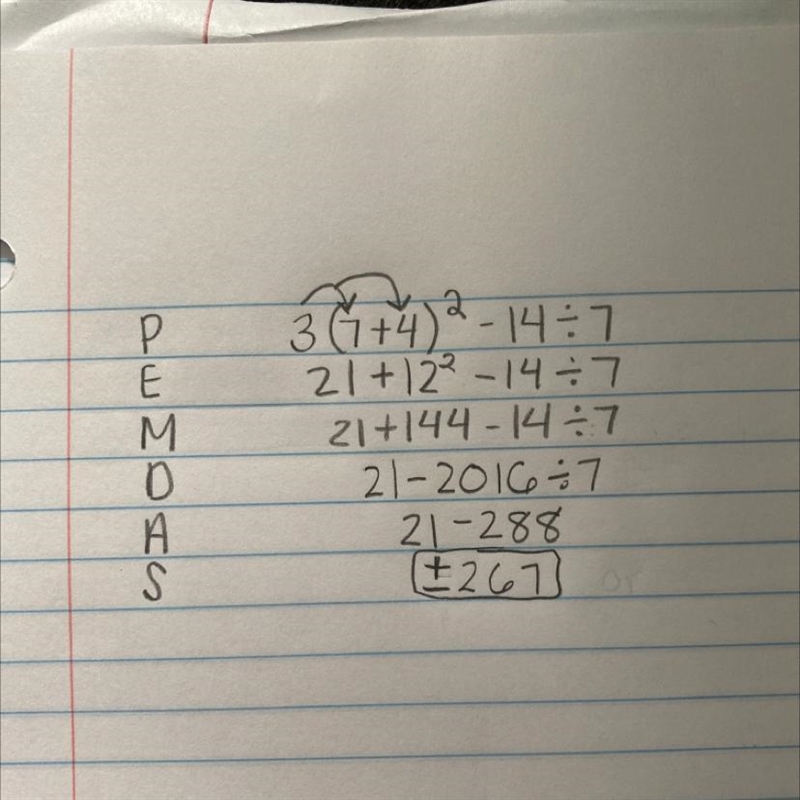 P 3(7+4)² - 14 ÷ 7
E 21 + 12² - 14 ÷ 7
M 21 + 144 - 14 ÷ 7
D 21 - 2016 ÷ 7
A 21 - 288
S ± 267